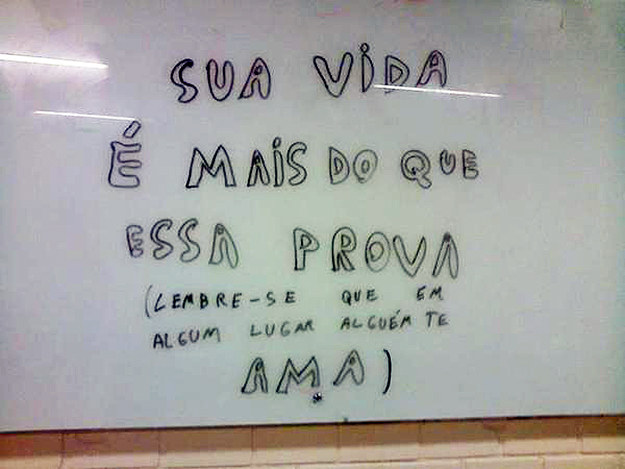 SUA ViDA
É MAiS DO QUE
ESSA PROVA
(LEMBRE-SE QUE EM
ALGUM LUGAR ALGUÉM TE
AMA)